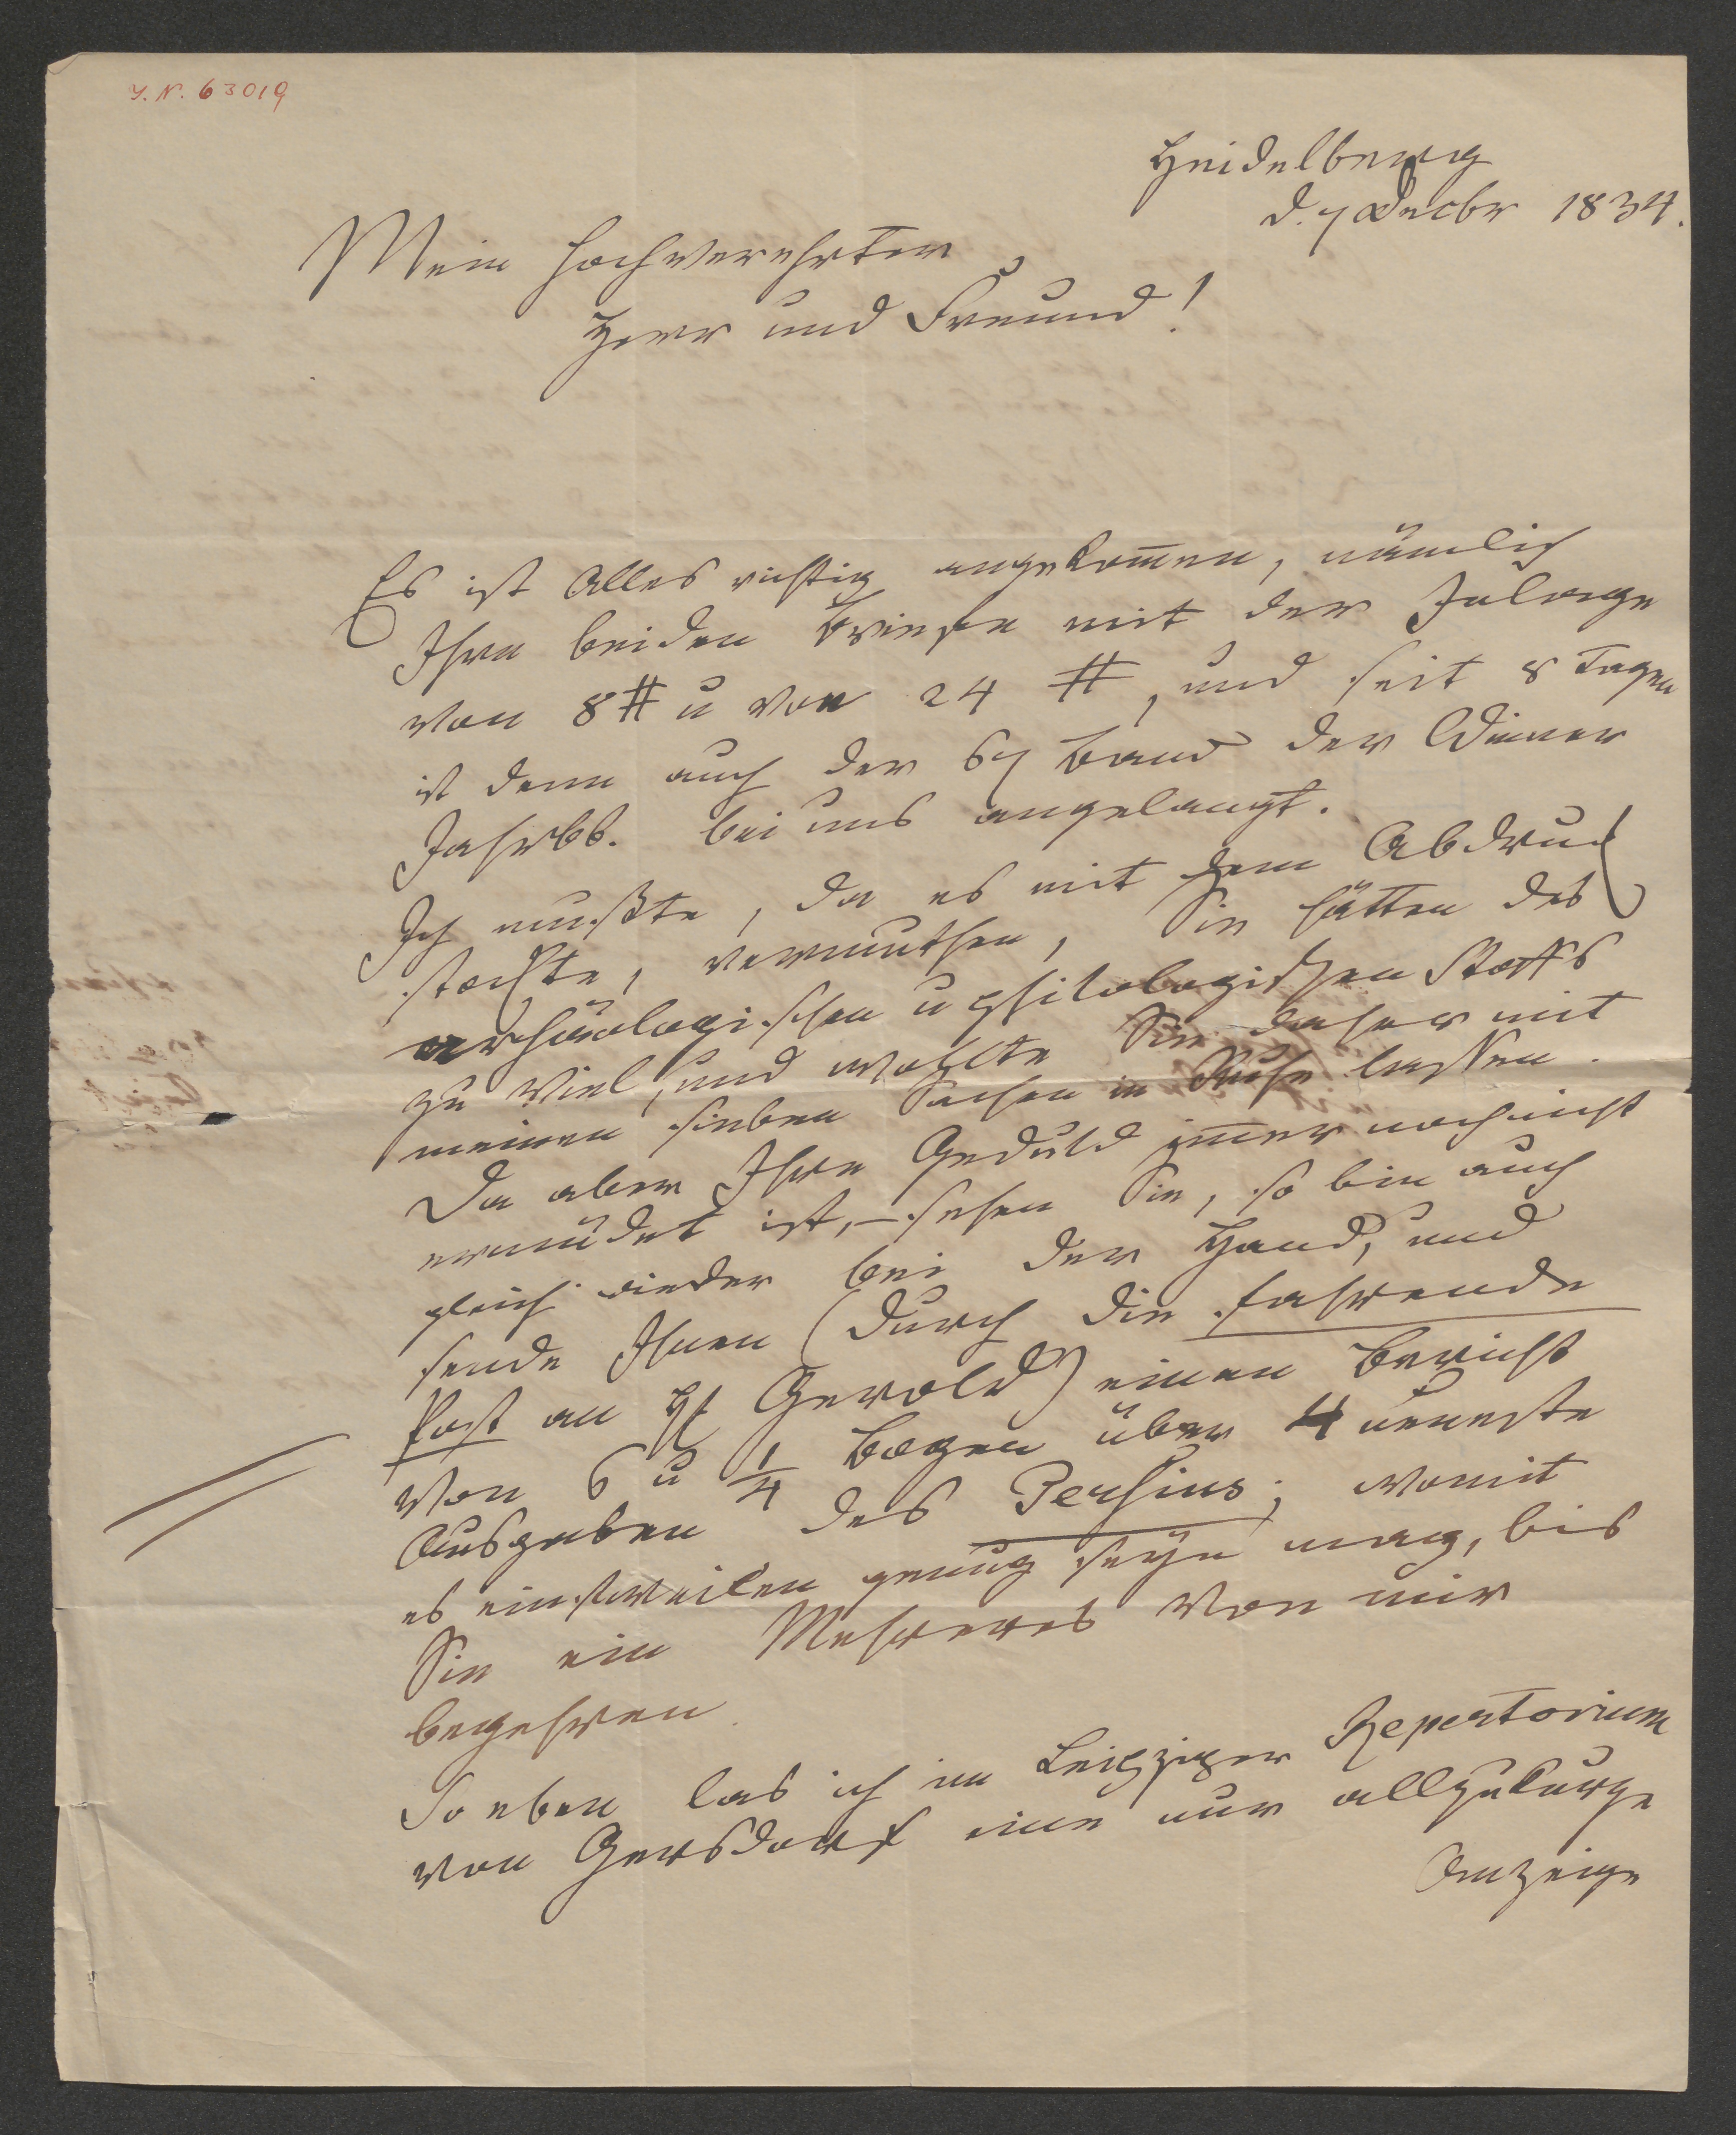 J. N. 63019
Heidelberg
d. 7 Decbr 1834.
Mein hochverehrter
Herr und Freund!
Es ist Alles richtig angekom̄en, nämlich
Ihre beiden Briefe mit der Inlage
von 8 # u von 24 #, und seit 8 Tagen
ist denn auch der 67 Band der Wiener
Jahrbb. bei uns angelangt.
Ich mußte, da es mit dem Abdruck
stockte, vermuthen, Sie hätten des
archäologischen u philologischen Stoffs
zu viel, und wollte Sie daher mit
meinen sieben Sachen in Ruhe lassen.
Da aber Ihre Geduld im̄er noch nicht
ermüdet ist, – sehen Sie, so bin auch
gleich wieder bei der Hand, und
sende Ihnen (durch die fahrende
Post an H Gerold) einen Bericht
von 6 u 1/4 Bogen über 4 neueste
Ausgaben des Persius; womit
es einstweilen genug seyn mag, bis
Sie ein Mehreres von mir
begehren.
So eben las ich im Leipziger Repertorium
von Gersdorf eine nur allzukurze
Anzeige